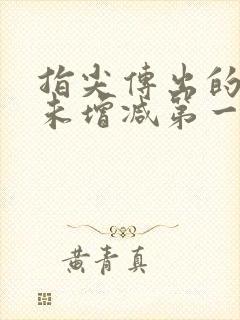 指尖傳出的
未增減第一
黄青真